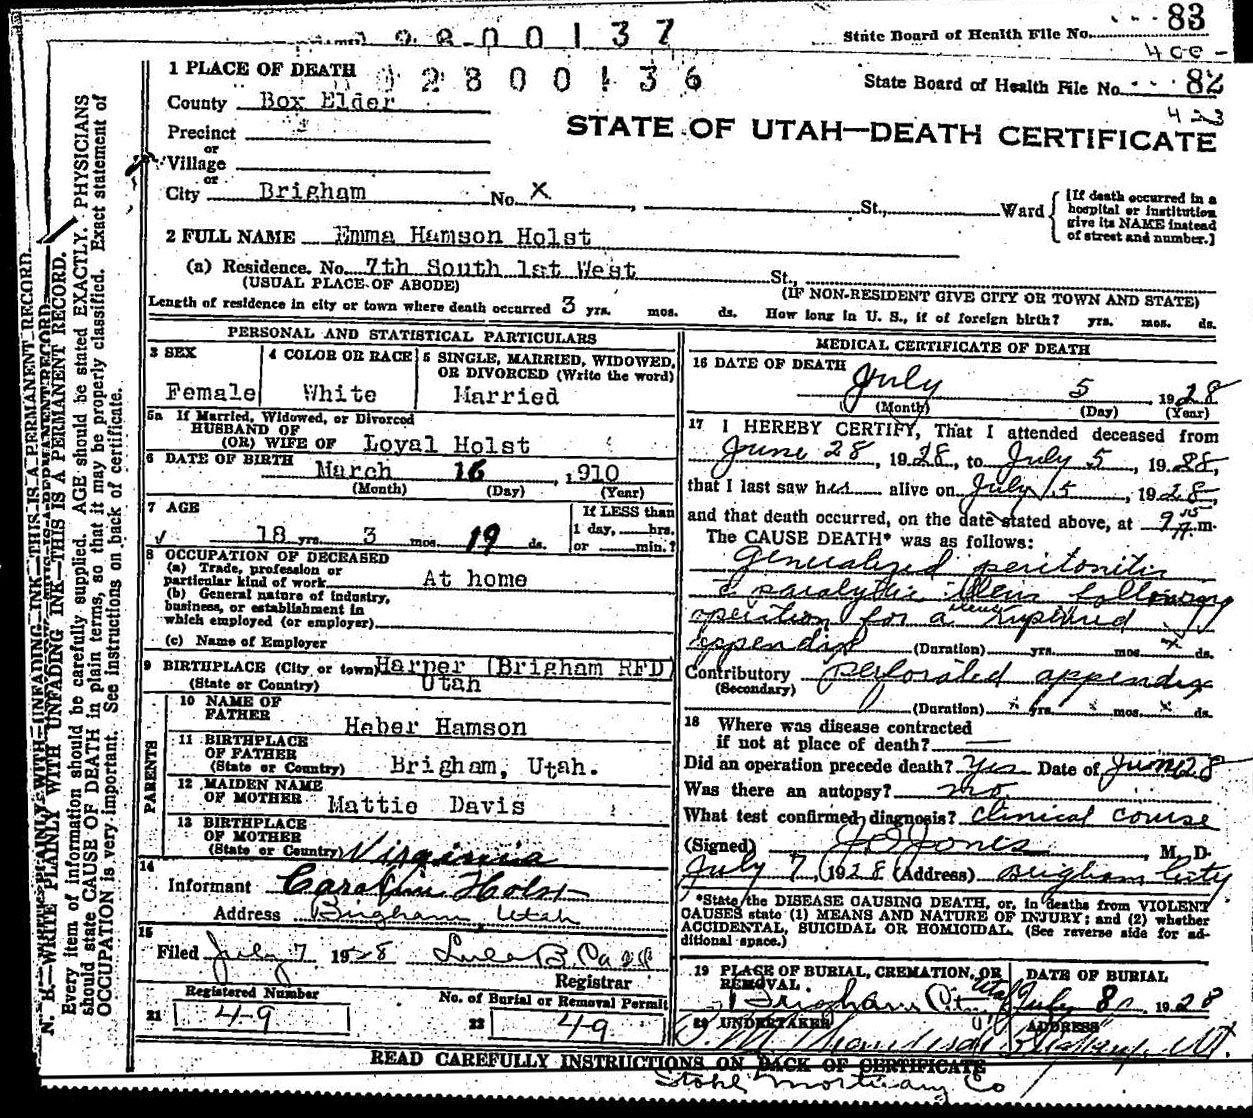 83
State Board of Health File No.
400-
2800137
1 PLACE OF DEATH
2800136
State Board of Health File No. 82
423
County Box Elder
STATE OF UTAH—DEATH CERTIFICATE
Precinct
or
Village
or
City Brigham No. X St., Ward
[If death occurred in a hospital or institution give its NAME instead of street and number.]
2 FULL NAME Emma Hamson Holst
(a) Residence. No. 7th South 1st West St.,
(USUAL PLACE OF ABODE) (IF NON-RESIDENT GIVE CITY OR TOWN AND STATE)
Length of residence in city or town where death occurred 3 yrs. mos. ds. How long in U. S., if of foreign birth? yrs. mos. ds.
PERSONAL AND STATISTICAL PARTICULARS
3 SEX Female
4 COLOR OR RACE White
5 SINGLE, MARRIED, WIDOWED, OR DIVORCED (Write the word)
Married
5a If Married, Widowed, or Divorced
HUSBAND OF
(OR) WIFE OF Loyal Holst
6 DATE OF BIRTH March 16, 1910
(Month) (Day) (Year)
7 AGE
18 yrs. 3 mos. 19 ds.
If LESS than
1 day, hrs.
or min.?
8 OCCUPATION OF DECEASED
(a) Trade, profession or
particular kind of work At home
(b) General nature of industry,
business, or establishment in
which employed (or employer)
(c) Name of Employer
9 BIRTHPLACE (City or town) Harper (Brigham RFD)
(State or Country) Utah
PARENTS
10 NAME OF
FATHER Heber Hamson
11 BIRTHPLACE
OF FATHER
(State or Country) Brigham, Utah.
12 MAIDEN NAME
OF MOTHER Mattie Davis
13 BIRTHPLACE
OF MOTHER
(State or Country) Virginia
14
Informant Caroline Holst
Address Brigham Utah
15
Filed July 7 1928
Registrar
Registered Number
21 49
No. of Burial or Removal Permit
22 49
MEDICAL CERTIFICATE OF DEATH
16 DATE OF DEATH
July 5, 1928
(Month) (Day) (Year)
17 I HEREBY CERTIFY, That I attended deceased from
June 28, 1928, to July 5, 1928,
that I last saw her alive on July 5, 1928,
and that death occurred, on the date stated above, at 9 15 A. m.
The CAUSE DEATH* was as follows:
Generalized peritonitis
c paralytic ileus following
operation for a ruptured
appendix (Duration) yrs. mos. ds.
Contributory perforated appendix
(Secondary)
(Duration) x yrs. x mos. x ds.
18 Where was disease contracted
if not at place of death?
Did an operation precede death? Yes Date of June 28
Was there an autopsy? no
What test confirmed diagnosis? Clinical course
(Signed) Jones, M. D.
July 7, 1928 (Address) Brigham City
*State the DISEASE CAUSING DEATH, or, in deaths from VIOLENT
CAUSES state (1) MEANS AND NATURE OF INJURY; and (2) whether
ACCIDENTAL, SUICIDAL OR HOMICIDAL. (See reverse side for ad-
ditional space.)
19 PLACE OF BURIAL, CREMATION, OR
REMOVAL.
Brigham City Utah
DATE OF BURIAL
July 8 1928
20 UNDERTAKER
ADDRESS
READ CAREFULLY INSTRUCTIONS ON BACK OF CERTIFICATE
Stohl Mortuary Co
N. B.—WRITE PLAINLY WITH UNFADING INK—THIS IS A PERMANENT RECORD.
Every item of information should be carefully supplied. AGE should be stated EXACTLY. PHYSICIANS
should state CAUSE OF DEATH in plain terms, so that it may be properly classified. Exact statement of
OCCUPATION is very important. See instructions on back of certificate.